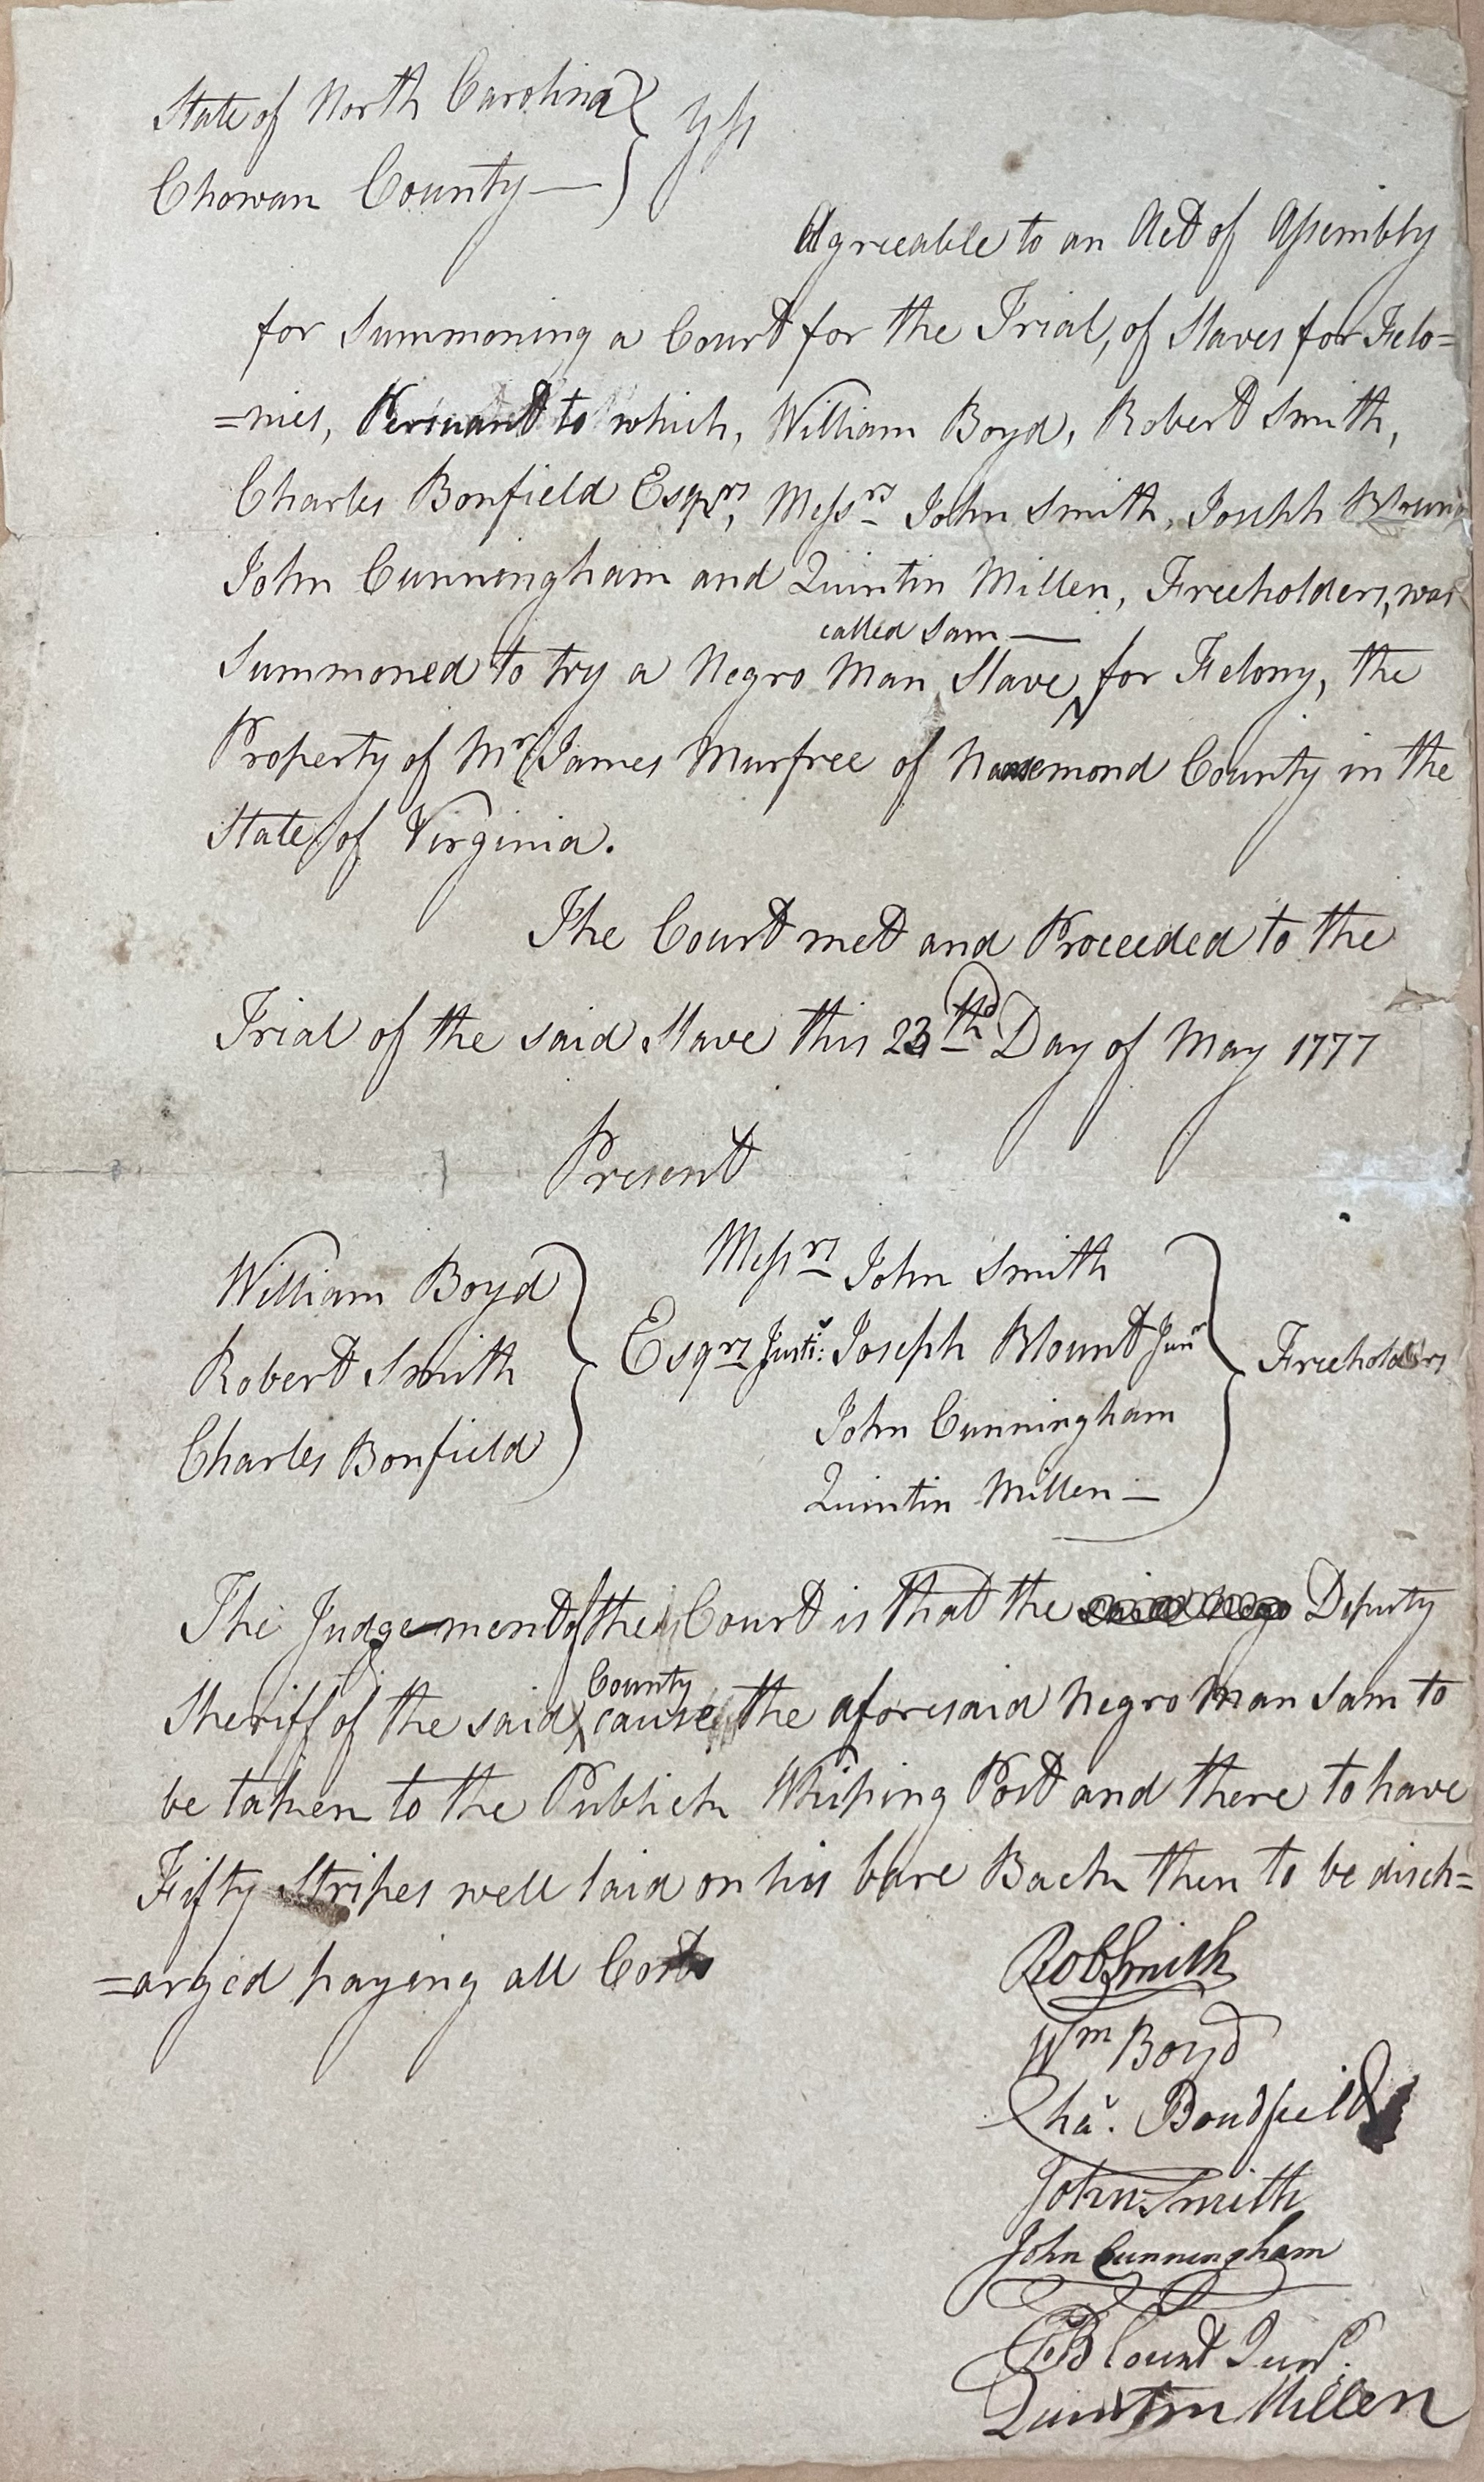 State of North Carolina }
Chowan County — } ss
Agreeable to an Act of Assembly
for Summoning a Court for the Trial, of Slaves for Felo=
=nies, Persuant to which, William Boyd, Robert Smith,
Charles Bonfield Esqrs, Messrs John Smith, Joseph Blount
John Cunningham and Quintin Millen, Freeholders, was
called Sam —
Summoned to try a Negro Man Slave ^ for Felony, the
Property of Mr James Murfree of Nansemond County in the
State of Virginia.
The Court met and Proceeded to the
Trial of the said Slave this 23rd Day of May 1777
Present
William Boyd
Robert Smith
Charles Bonfield
} Esqrs Justs:
Messrs John Smith
Joseph Blount Junr
John Cunningham
Quintin Millen —
} Freeholders
The Judgement of the Court is that the said Nego Deputy
County
Sheriff of the said ^ cause the aforesaid Negro Man Sam to
be taken to the Publick Whiping Post and there to have
Fifty Stripes well laid on his bare Back then to be disch=
=arged paying all Costs
Rob Smith
Wm Boyd
Chas. Bondfield
John Smith
John Cunningham
Blount Junr.
Quintin Millen